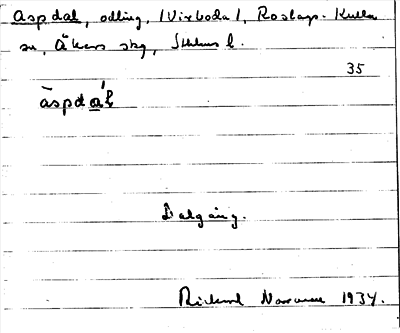 Aspdal, odling, (Vixboda), Roslags-Kulla
sn, Åkers skg, Sthlms l.
35
àspdál
Dalgång.
Rickard 1934.